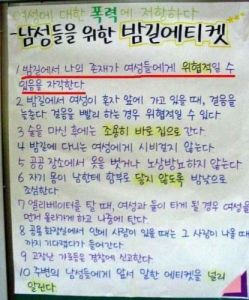 여성에 대한 폭력에 저항한다
-남성들을 위한 밤길에티켓
1 밤길에서 나의 존재가 여성들에게 위협적일 수
있음을 자각한다
2 밤길에서 여성이 혼자 앞에 가고 있을 때, 걸음을
늦춘다 걸음을 빨리 하는 경우 위협적일 수 있다
3 술을 마신 후에는 조용히 바로 집으로 간다
4 밤길에 다니는 여성에게 시비걸지 않는다
5 공공 장소에서 웃을 벗거나 노상방뇨하지 않는다
6 자기 몸이 남한테 함부로 닿지 않도록 방낮으로
조심한다
7 엘리베이터를 탈 때, 여성과 둘이 타게 될 경우 여성을
먼저 올라가게 하고 나중에 탄다
8 공용 화장실에서 안에 사람이 있을 때는 그 사람이 나올 때
까지 기다렸다가 들어간다
9 고장난 가로등은 경찰에 신고한다
10 주변의 남성들에게 앞서 말한 에티켓을 널리
알린다